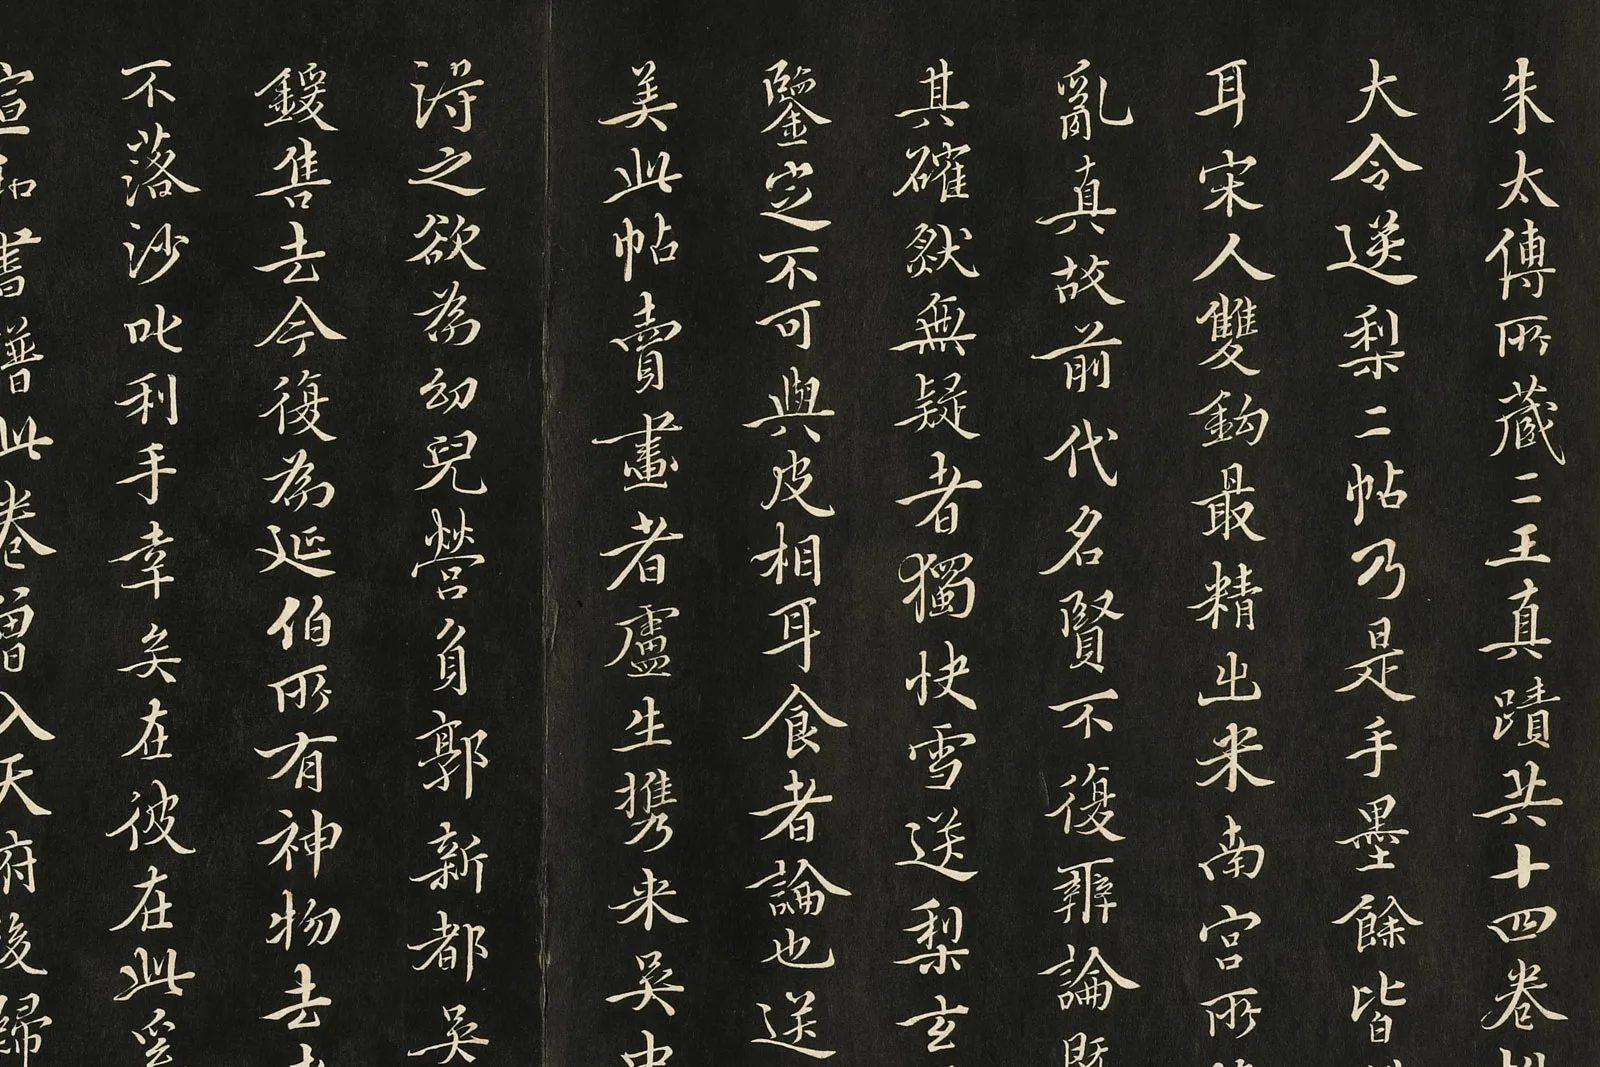 朱太傅所藏二王真蹟共十四卷
大令送梨二帖乃是手墨餘皆
耳宋人雙鉤最精出米南宮所
亂真故前代名賢不復辨論既
其確然無疑者獨快雪送梨玄
鑒定不可與皮相耳食者論也送
美此帖賣畫者廬生攜来吳中
得之欲為幼兒營負郭新都吳
鍰售去今復為延伯所有神物去
不落沙叱利手幸矣在彼在此奚
書譜此卷曾入天府後歸